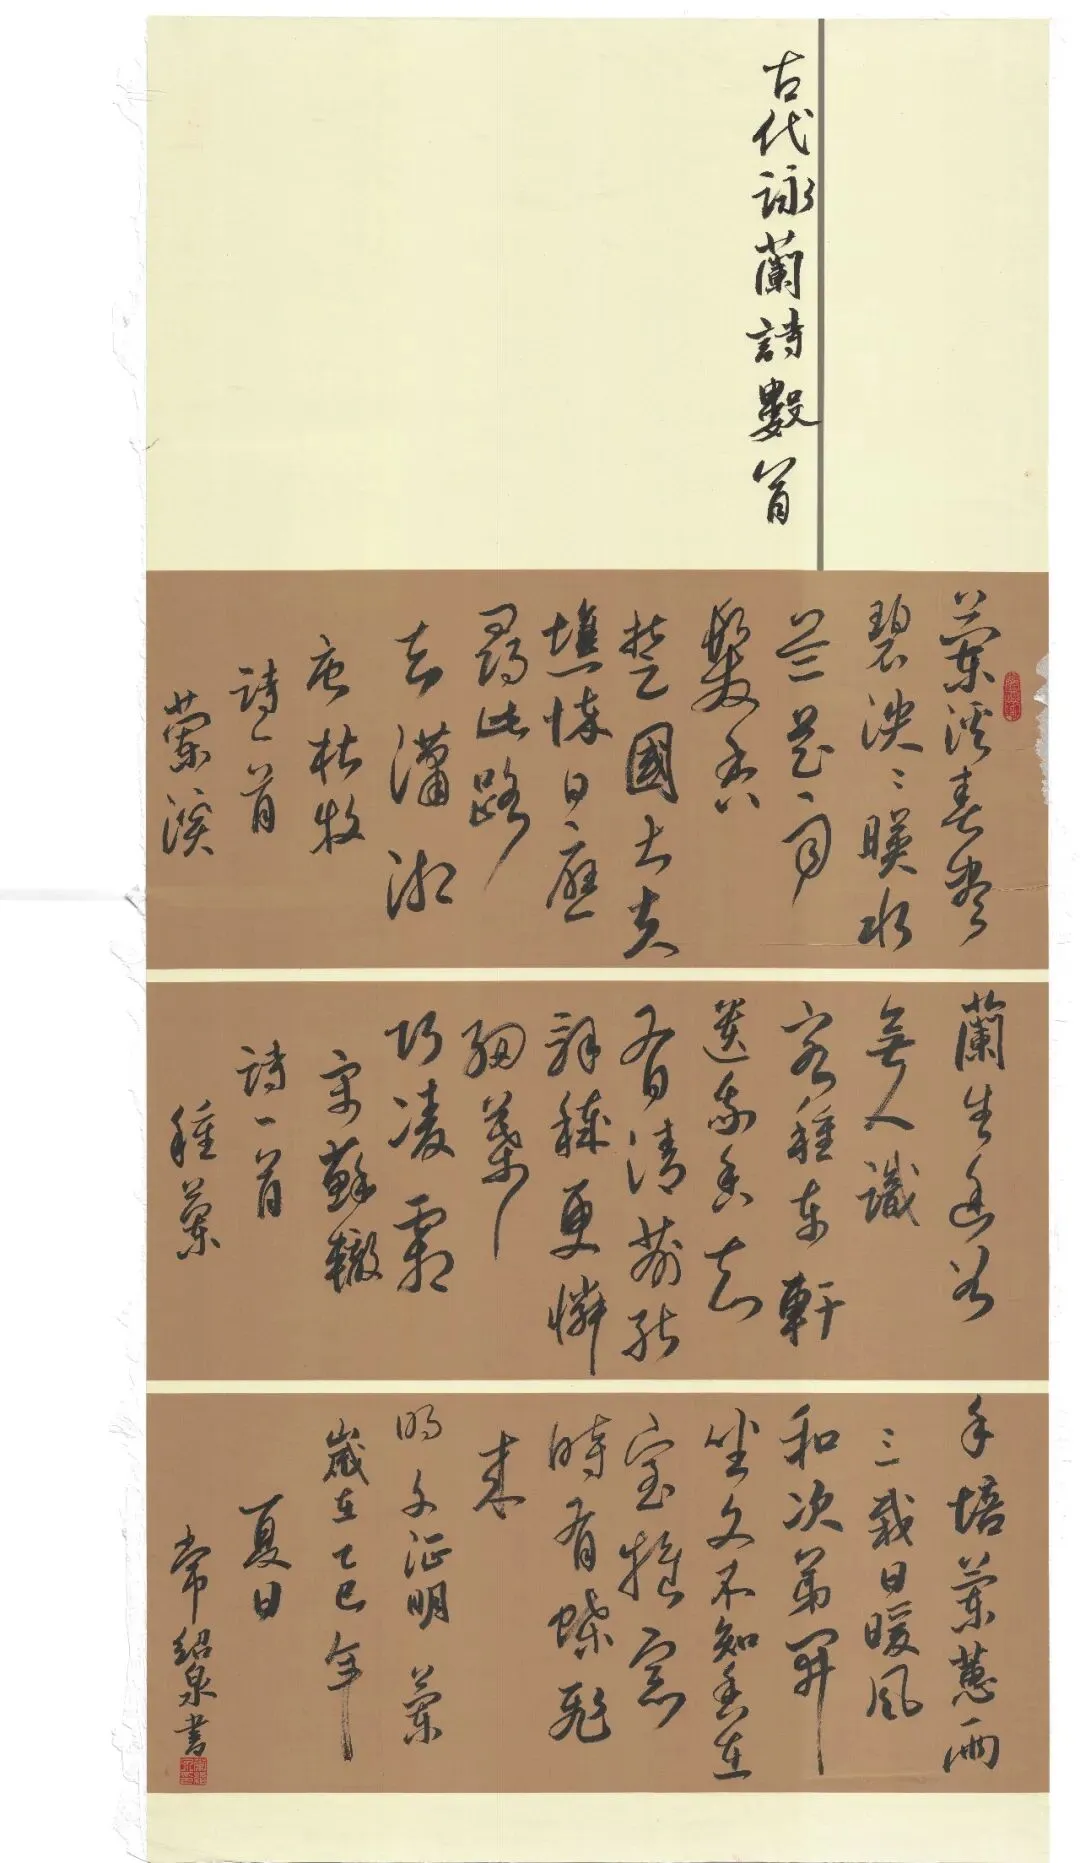 古代詠蘭詩數首
蘭溪春盡
碧泱泱暎水
蘭花雨
發香
楚國大夫
憔悴日應
尋此路
去瀟湘
唐杜牧
詩一首
蘭溪
蘭生幽谷
無人識
客種東軒
遺我香知
有清芬能
解穢更憐
細葉
巧凌霜
宋蘇轍
詩一首
種蘭
手培蘭蕙兩
三栽日暖風
和次第開
坐久不知香在
室推窗
時有蝶飛
來
明文征明蘭
歲在乙巳年
夏日
常紹泉書